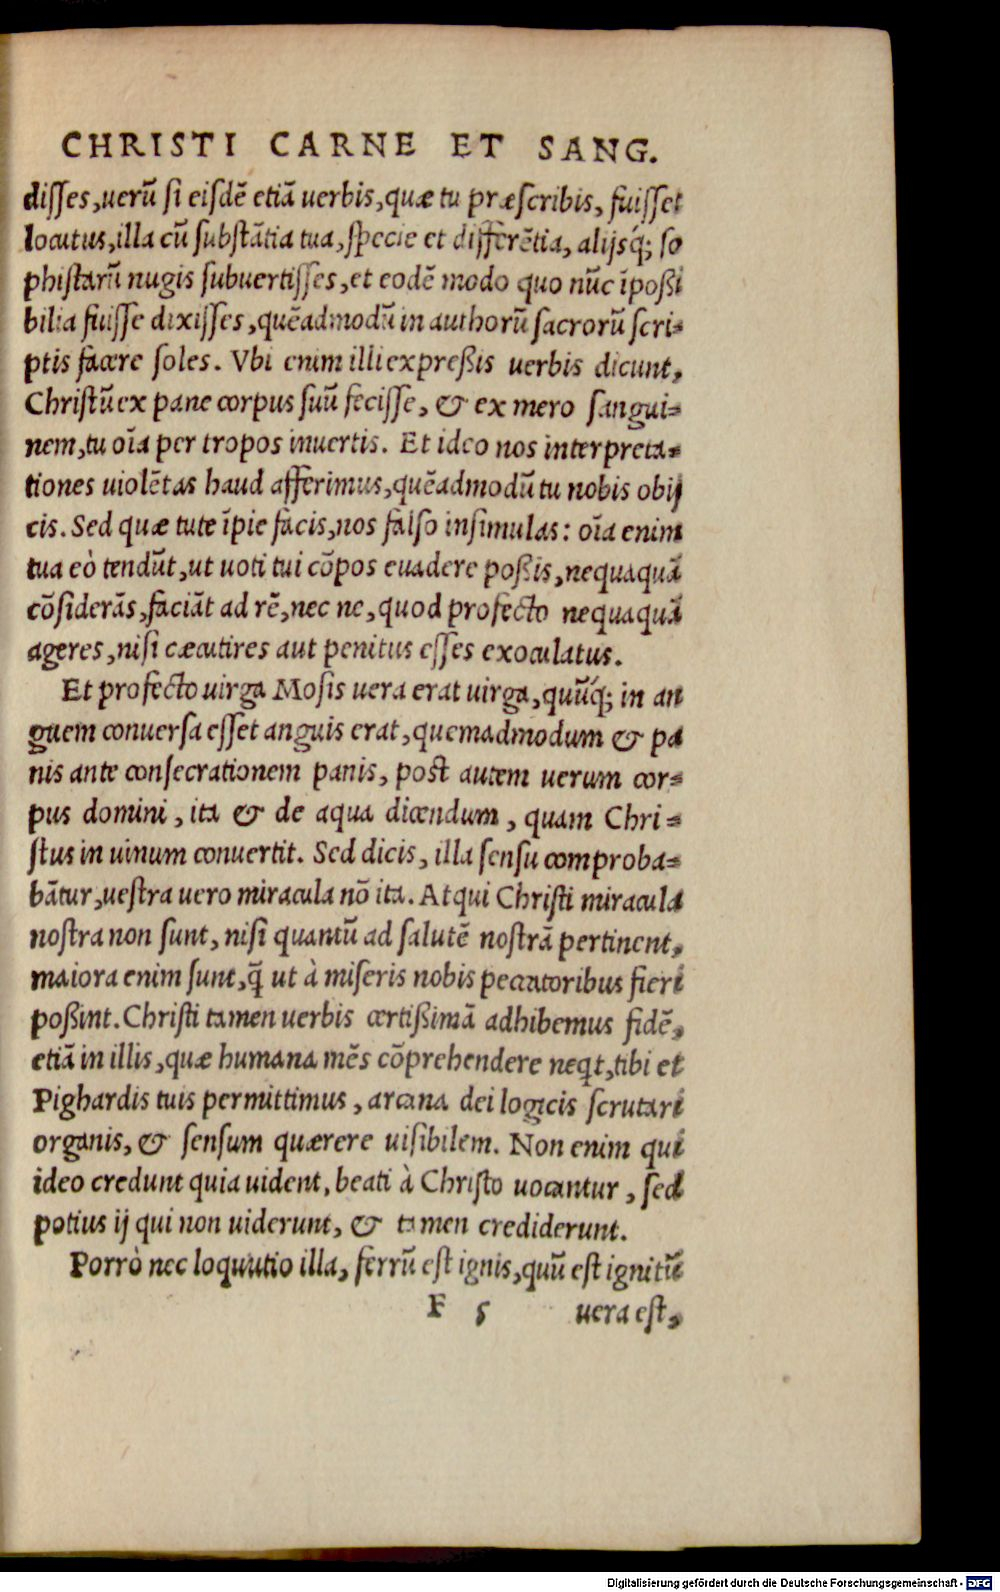 CHRISTI CARNE ET SANG.
disses, uerũ si eisdẽ etiã uerbis, quæ tu præscribis, fuisset
locutus, illa cũ substãtia tua, specie et differẽtia, alijsq́; so
phistarũ nugis subuertisses, et eodẽ modo quo nũc ĩpoßi
bilia fuisse dixisses, quẽadmodũ in authorũ sacrorũ scri-
ptis facere soles. Vbi enim illi expreßis uerbis dicunt,
Christũ ex pane corpus suũ fecisse, & ex mero sangui-
nem, tu oĩa per tropos inuertis. Et ideo nos interpreta-
tiones uiolẽtas haud afferimus, quẽadmodũ tu nobis obij
cis. Sed quæ tute ĩpie facis, nos falso insimulas: oĩa enim
tua eò tendũt, ut uoti tui cõpos euadere poßis, nequaquã
cõsiderãs, faciãt ad rẽ, nec ne, quod profecto nequaquã
ageres, nisi cæcutires aut penitus esses exoculatus.
Et profecto uirga Mosis uera erat uirga, quũq́; in an
guem conuersa esset anguis erat, quemadmodum & pa
nis ante consecrationem panis, post autem uerum cor-
pus domini, ita & de aqua dicendum, quam Chri-
stus in uinum conuertit. Sed dicis, illa sensu comproba-
bãtur, uestra uero miracula nõ ita. Atqui Christi miracula
nostra non sunt, nisi quantũ ad salutẽ nostrã pertinent,
maiora enim sunt, q̃ ut à miseris nobis peccatoribus fieri
poßint. Christi tamen uerbis certißimã adhibemus fidẽ,
etiã in illis, quæ humana mẽs cõprehendere neqt, tibi et
Pighardis tuis permittimus, arcana dei logicis scrutari
organis, & sensum quærere uisibilem. Non enim qui
ideo credunt quia uident, beati à Christo uocantur, sed
potius ij qui non uiderunt, & tamen crediderunt.
Porrò nec loquutio illa, ferrũ est ignis, quũ est ignitũ
F 5 uera est,
Digitalisierung gefördert durch die Deutsche Forschungsgemeinschaft - DFG